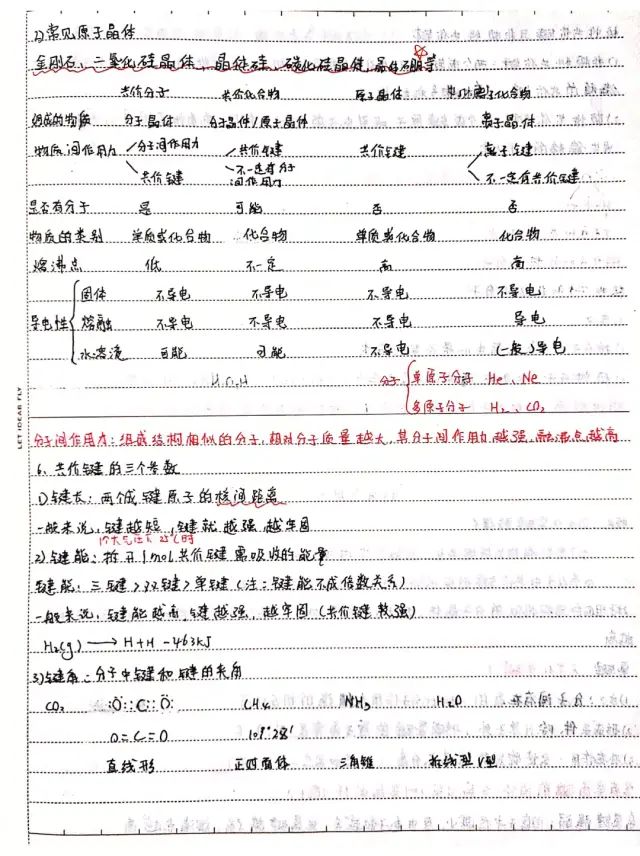 2)常见原子晶体
金刚石、二氧化硅晶体、晶体硅、碳化硅晶体、晶体硼等
共价分子 共价化合物 原子晶体 离子化合物
组成的物质 分子晶体 分子晶体/原子晶体 离子晶体
物质间作用力 分子间作用力 共价键 共价键 离子键
共价键 不一定有分子间作用力 不一定有共价键
是否有分子 是 可能 否 否
物质的类别 单质或化合物 化合物 单质或化合物 化合物
熔沸点 低 不一定 高 高
导电性 固体 不导电 不导电 不导电 不导电
熔融 不导电 不导电 不导电 导电
水溶液 可能 可能 不导电 (一般)导电
分子 单原子分子 He、Ne
多原子分子 H₂、CO₂
LET IDEAS FLY
分子间作用力:组成结构相似的分子,相对分子质量越大,其分子间作用力越强,熔沸点越高
6、共价键的三个参数
1)键长:两个成键原子的核间距离
一般来说,键越短,键就越强越牢固
1个大气压下 25℃时
2)键能:拆开1mol共价键需吸收的能量
键能:三键>双键>单键(注:键能不成倍数关系)
一般来说,键能越高,键越强,越牢固(共价键较强)
H₂(g) → H+H -463kJ
3)键角:分子中键和键的夹角
CO₂ :Ö::C::Ö: CH₄ NH₃ H₂O
O=C=O 109°28′
直线形 正四面体 三角锥 折线型V型